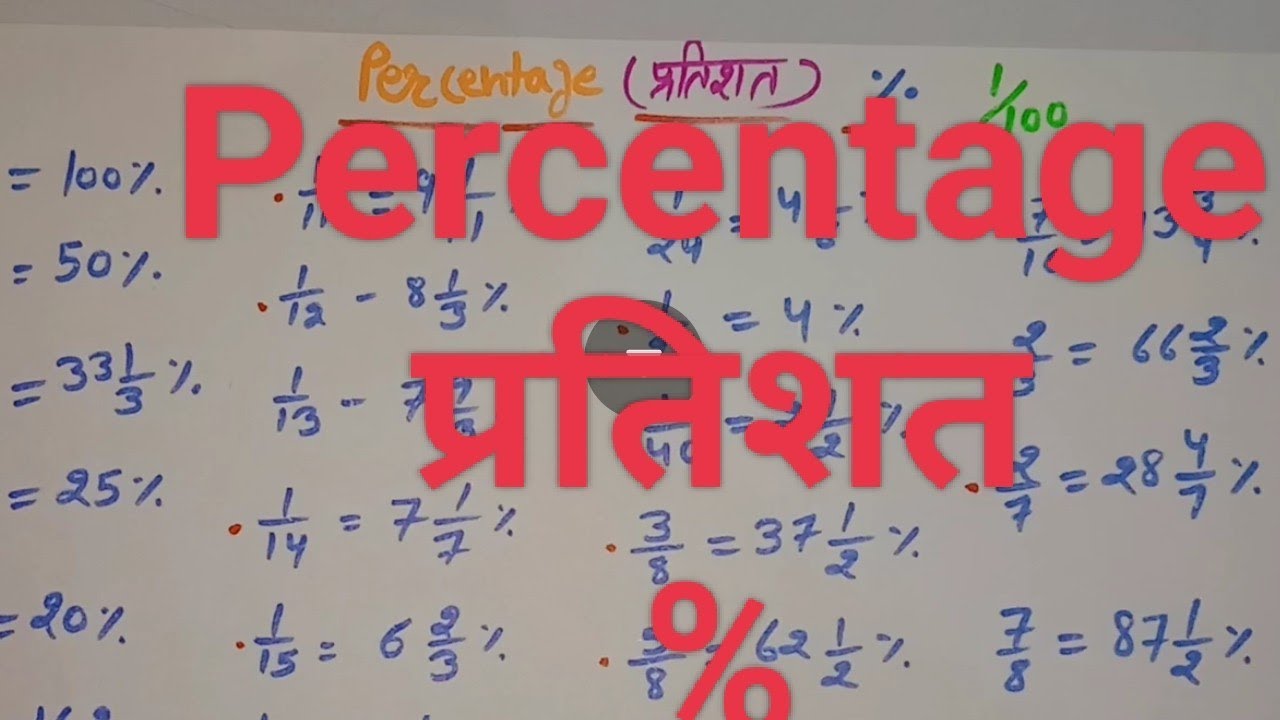 Percentage (प्रतिशत) % 1/100
Percentage
प्रतिशत
%
= 100%
= 50%
= 33 1/3 %
= 25%
= 20%
1/12 - 8 1/3 %
1/13 - 7
1/14 = 7 1/7 %
1/15 = 6 2/3 %
1/24 = 4
= 4%
1/40 =
3/8 = 37 1/2 %
62 1/2 %
2/3 = 66 2/3 %
2/7 = 28 4/7 %
7/8 = 87 1/2 %